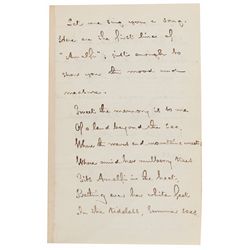 Let me sing you a song.
Here are the first lines of
"Amalfi"; just enough to
show you the mood and
measure.
Sweet the memory is to me
Of a land beyond the sea,
Where the waves and mountains meet;
Where amid her mulberry trees
Sits Amalfi in the heat,
Bathing ever her white feet
In the tideless, summer seas.